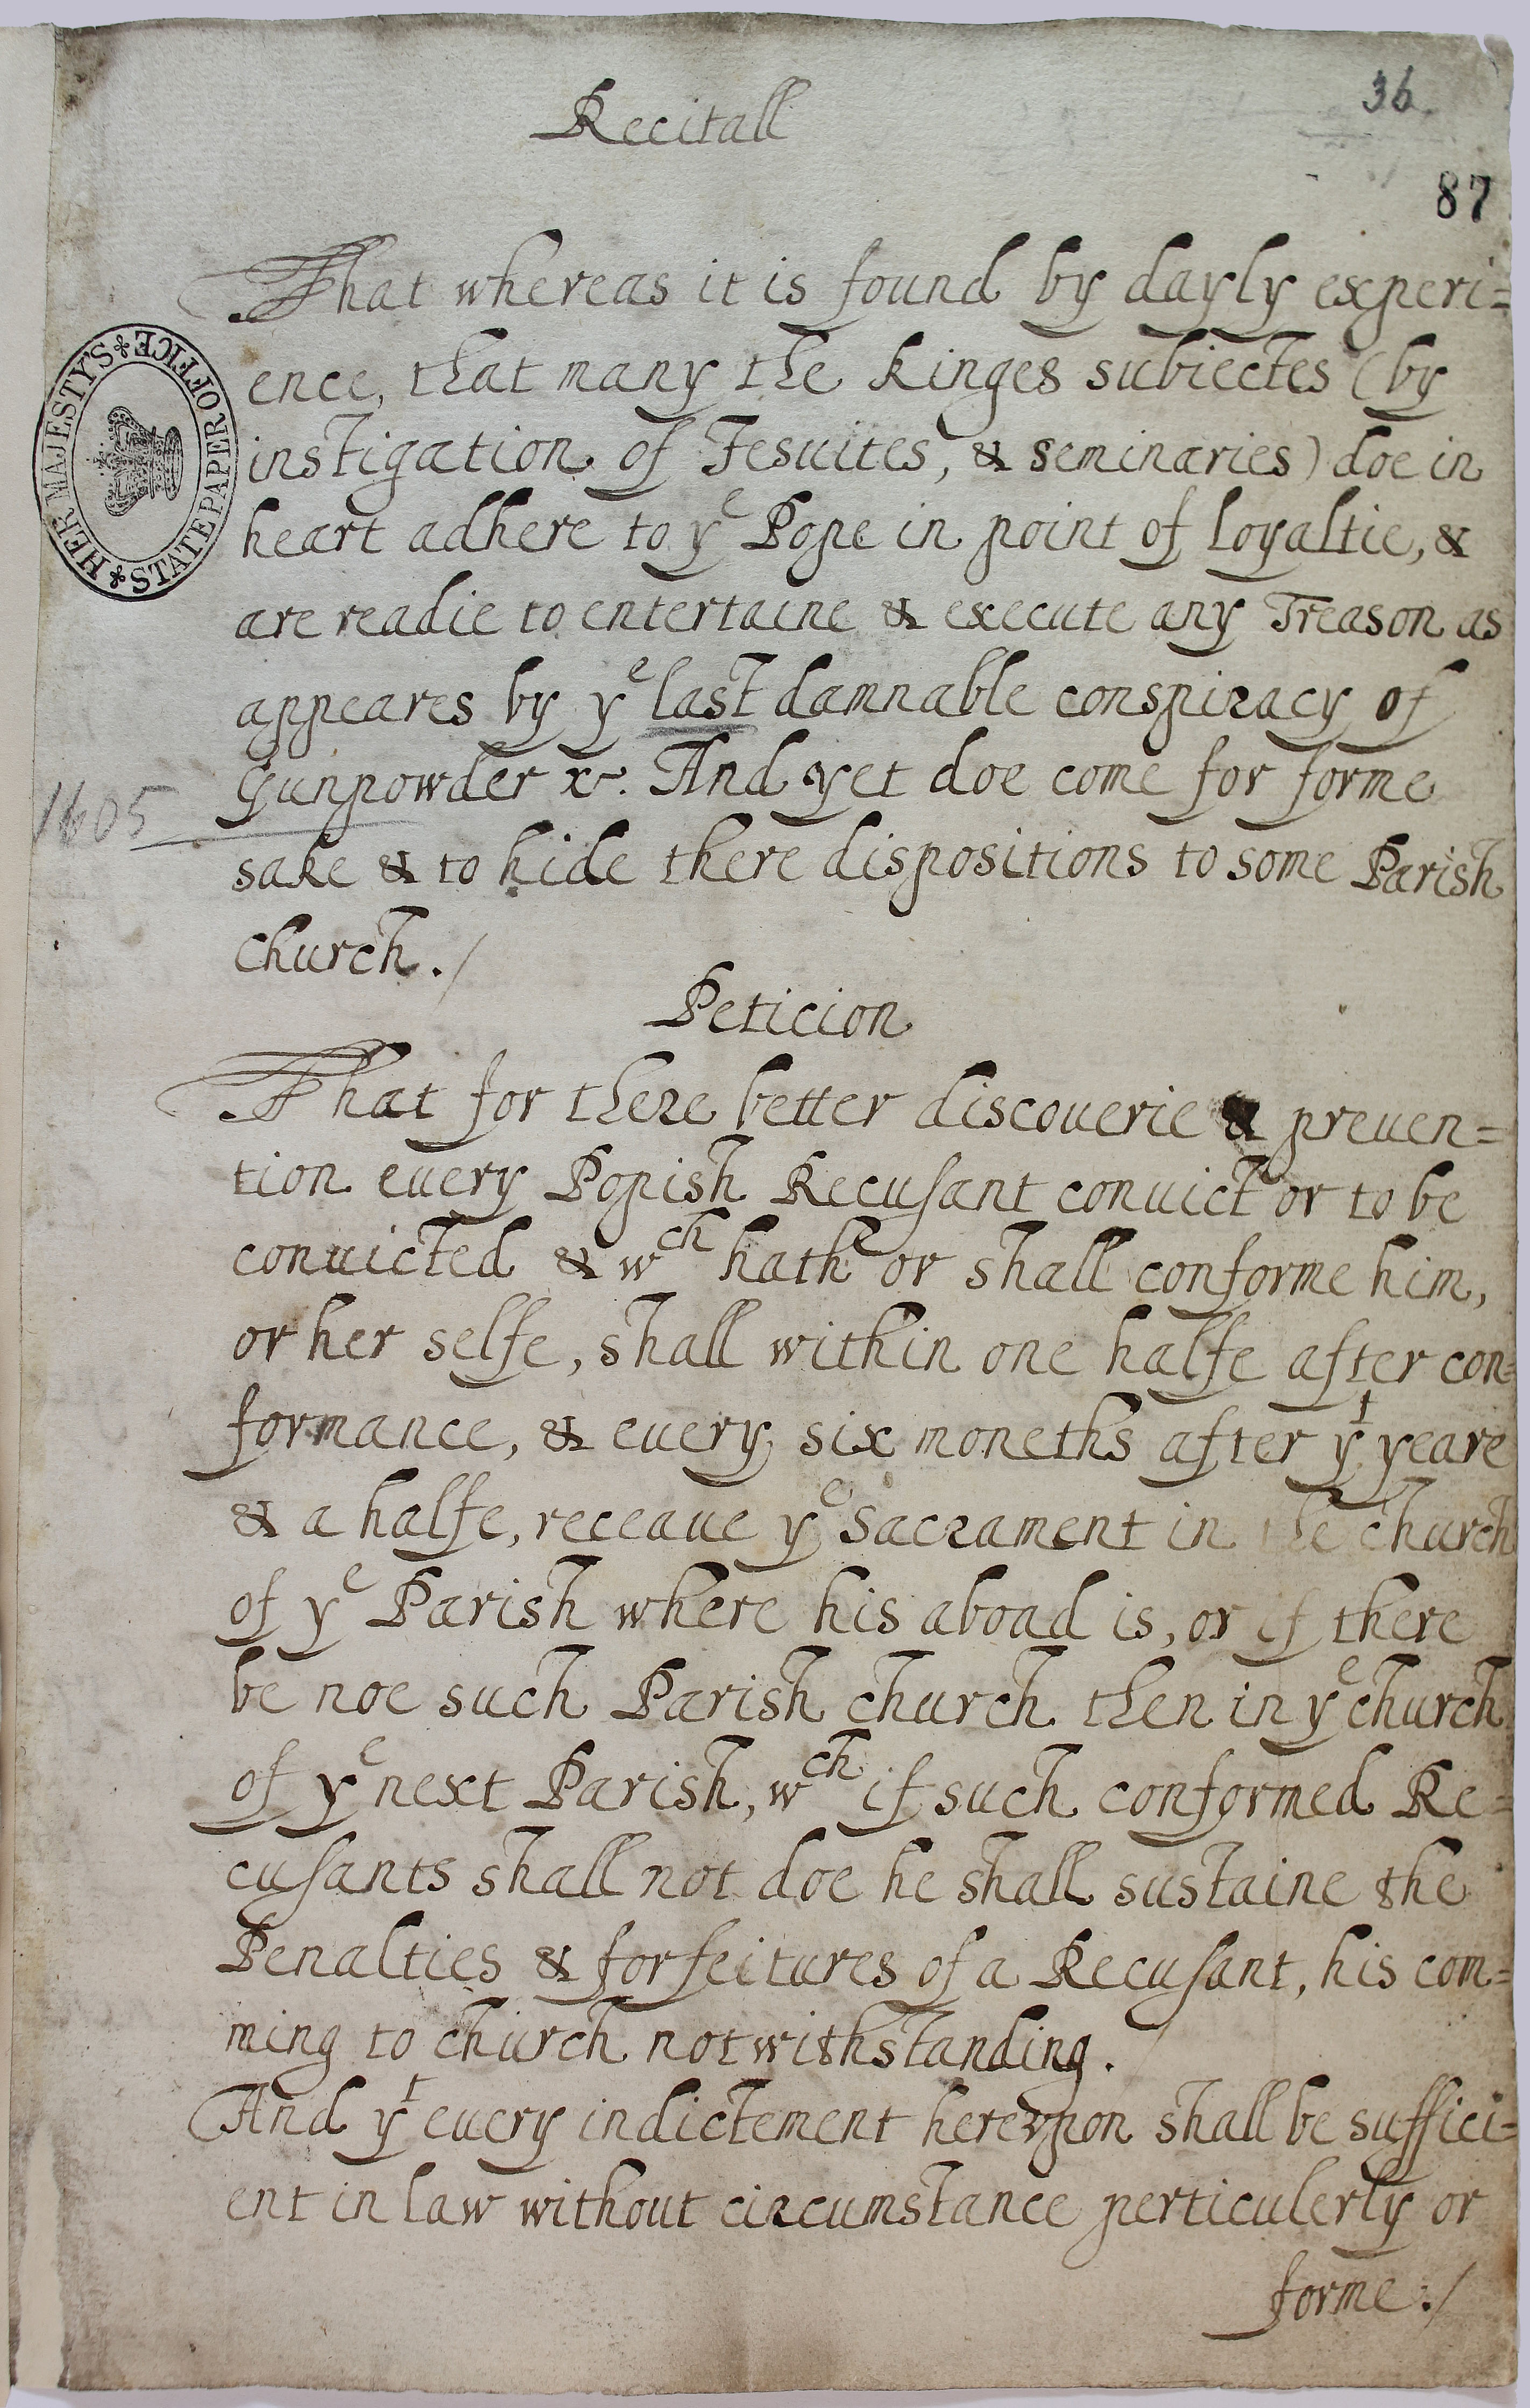 Recitall
36
87
That whereas it is found by dayly experi=
ence, that many the Kinges subiectes (by
instigation of Jesuites, & seminaries) doe in
heart adhere to yᵉ Pope in point of loyaltie, &
are readie to entertaine & execute any Treason as
appeares by yᵉ last damnable conspiracy of
Gunpowder &c. And yet doe come for forme
1605
sake & to hide there dispositions to some Parish
church./
Peticion
That for there better discouerie & preuen=
tion euery Popish Recusant conuict or to be
conuicted & wᶜʰ hath or shall conforme him,
or her selfe, shall within one halfe after con=
formance, & euery six moneths after yᵗ yeare
& a halfe, receaue yᵉ Sacrament in the church
of yᵉ Parish where his aboad is, or if there
be noe such Parish church then in yᵉ church
of yᵉ next Parish, wᶜʰ if such conformed Re=
cusants shall not doe he shall sustaine the
Penalties & forfeitures of a Recusant, his com=
ming to church notwithstanding.
And yᵗ euery indictement herevpon shall be suffici=
ent in law without circumstance perticulerly or
forme:/
HER MAJESTY'S STATE PAPER OFFICE